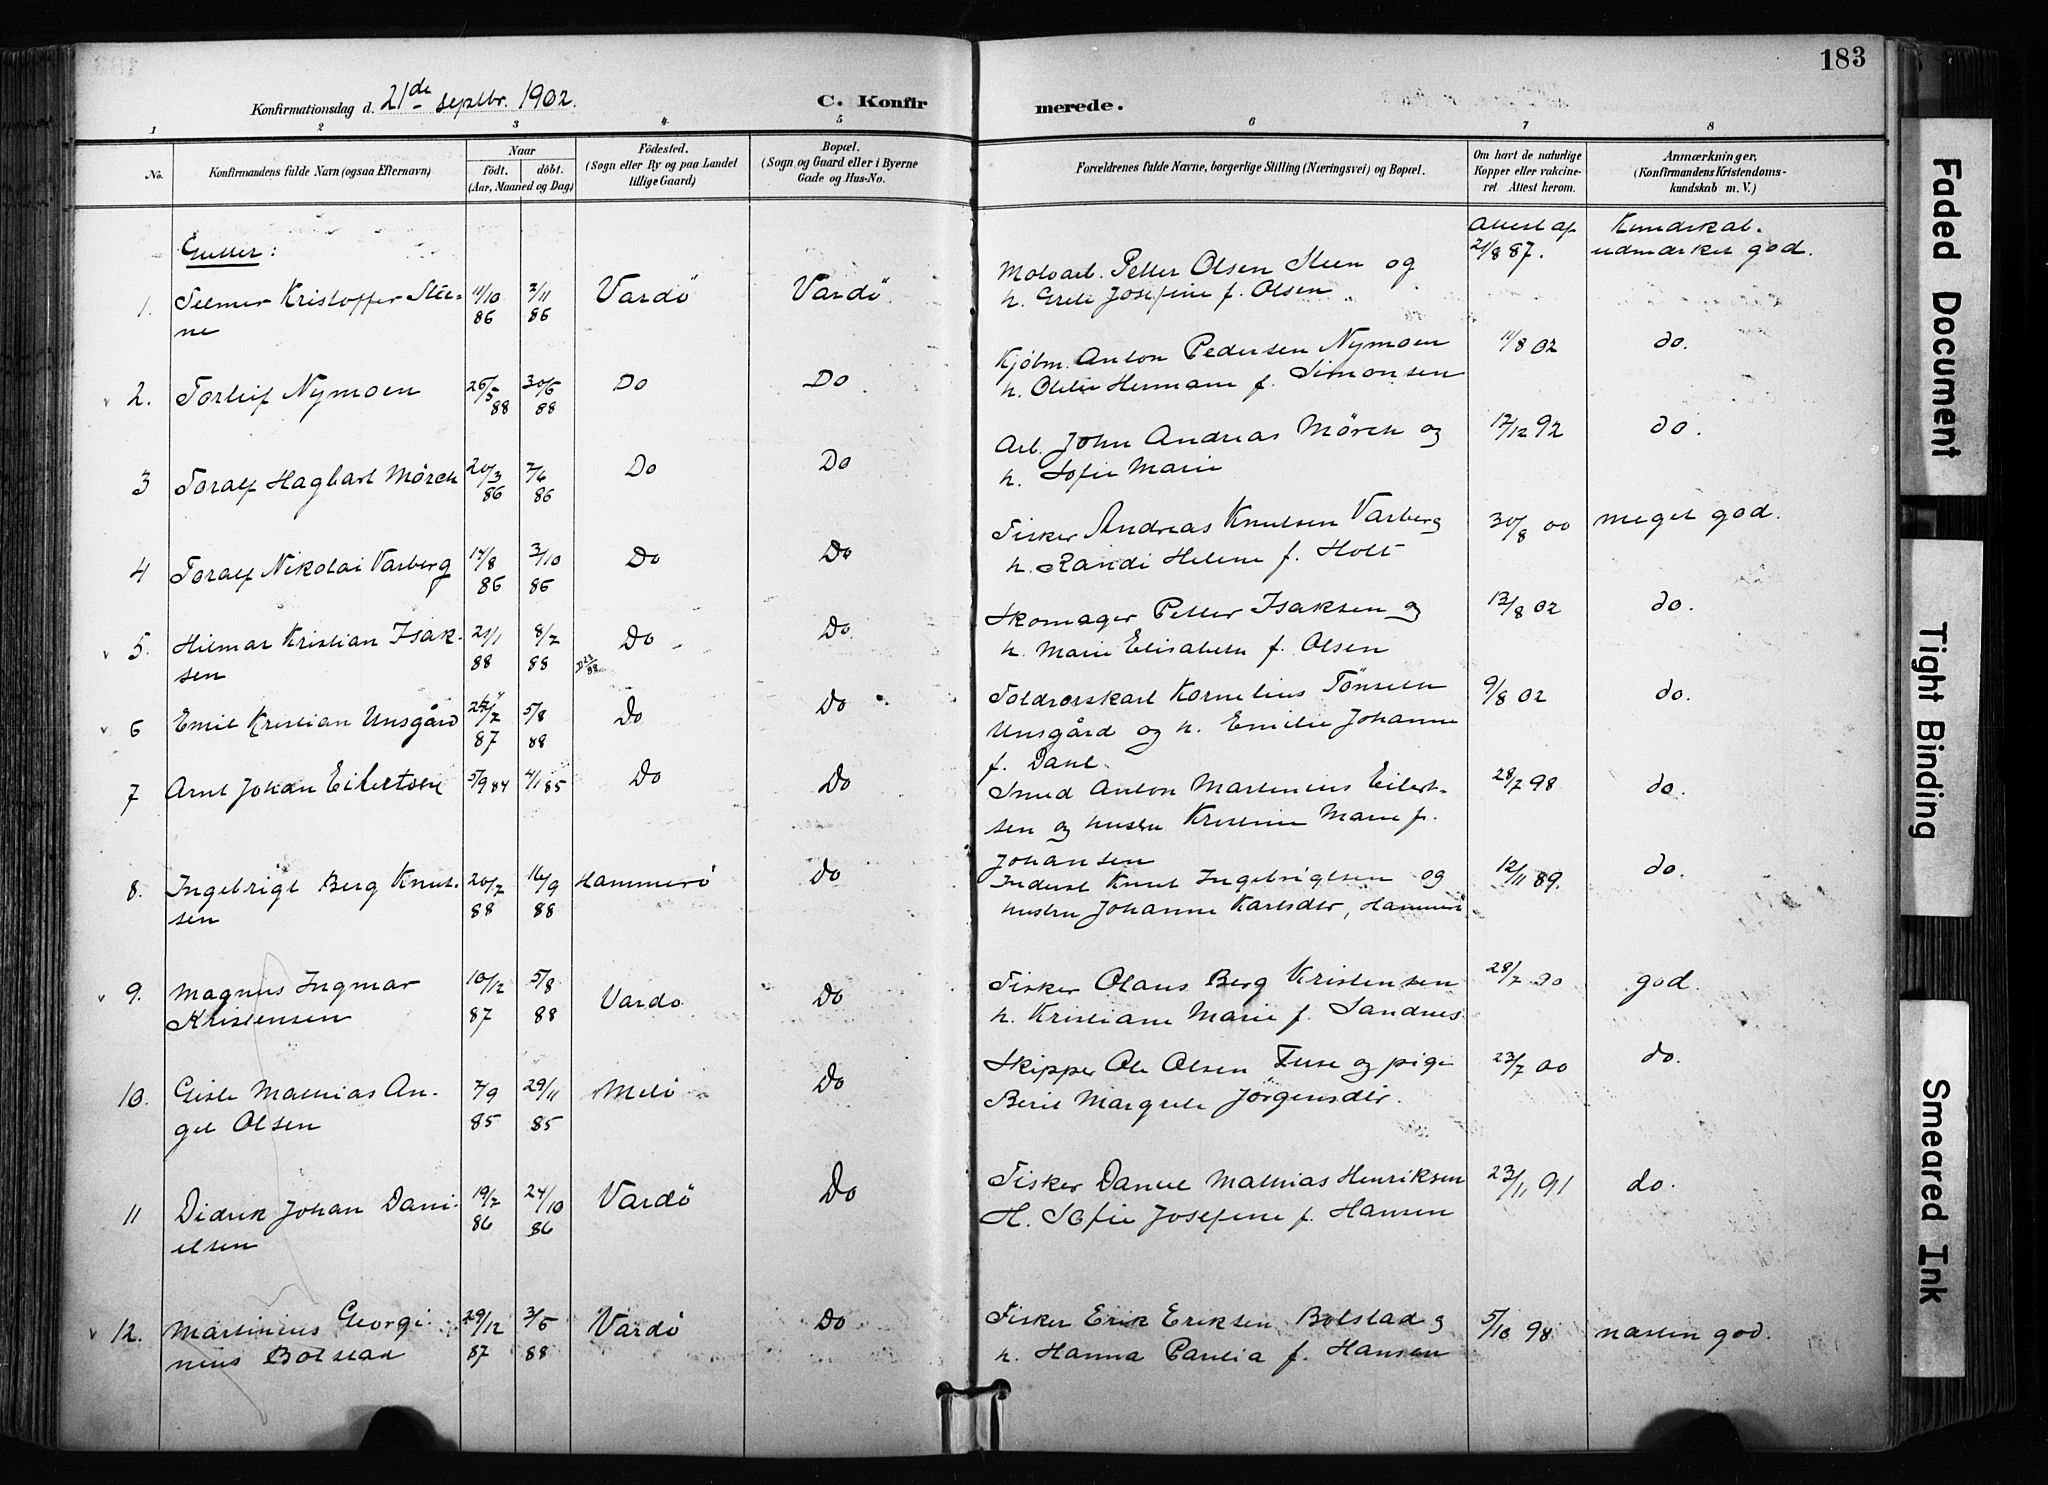 183
Konfirmationsdag d. 21de septbr. 1902.
C. Konfirmerede.
1 2 3 4 5 6 7 8
No.
Konfirmandens fulde Navn (ogsaa Efternavn)
Naar
födt. döbt.
(Aar, Maaned og Dag)
Födested.
(Sogn eller By og paa Landet
tillige Gaard.)
Bopæl.
(Sogn og Gaard eller i Byerne
Gade og Hus-No.
Forældrenes fulde Navne, borgerlige Stilling (Næringsvei) og Bopæl.
Om havt de naturlige
Kopper eller vakcine-
ret. Attest herom.
Anmærkninger.
(Konfirmandens Kristendoms-
kundskab m. V.)
Gutter:
Attest af
21/8 87.
Kundskab.
udmærket god.
1. Telmer Kristoffer Stee-
ne
11/10 86 7/11 86 Vardö Vardö
Petter Olsen Steen og
h. Grete Josefine f. Olsen
2. Torleif Nymoen 26/5 88 30/6 88 Do Do
Kjöbm. Anton Pedersen Nymoen
h. Otelie Hermane f. Simonsen
11/8 02 do.
3 Toralf Hagbart Mörch 20/3 86 7/6 86 Do Do
Arb. John Andreas Mörch og
h. Sofie Marie
17/12 92 do.
4 Toralf Nikolai Varberg 14/8 86 3/10 86 Do Do
Fisker Andreas Knutsen Varberg
h. Randi Helene f. Holt
30/8 00 meget god.
5. Hilmar Kristian Isak-
sen
21/1 88 8/2 88 Do Do
Skomager Petter Isaksen og
h. Marie Elisabeth f. Olsen
13/8 02 do.
6 Emil Kristian Unsgård 87 5/8 88 Do Do
Toldrorskarl Kornelius Tönseth
Unsgård og h. Emilie Johanne
f. Dahl
9/8 02 do.
7 Arnt Johan Eilertsen 5/9 84 4/1 85 Do Do
Smed Anton Martinius Eilert-
sen og hustru Kristine Marie f.
Johansen
28/7 98 do.
8. Ingebrigt Berg Knut-
sen
20/7 88 16/9 88 Hammerö Do
Inderst Knut Ingebrigtsen og
hustru Johanne Karlsdtr, Hammerö
12/11 89. do.
9. Magnus Ingmar
Kristensen
10/12 87 5/8 88 Vardö Do
Fisker Olaus Berg Kristensen
h. Kristiane Marie f. Sandnes.
28/7 00 god
10. Gisle Mathias An-
gel Olsen
7/9 85 29/11 85 Melö Do
Skipper Ole Olsen Fuse og pige
Berit Margrete Jörgensdtr.
23/7 00 do.
11 Didrik Johan Dani-
elsen
19/7 86 24/10 86 Vardö Do
Fisker Daniel Mathias Henriksen
H. Sofie Josefine f. Hansen
23/11 91 do.
12. Martinius Georgi-
nius Bolstad
29/12 87 3/6 88 Vardö Do
Fisker Erik Eriksen Bolstad og
h. Hanna Paulia f. Hansen
5/10 98 næsten god.
Faded Document
Tight Binding
Smeared Ink